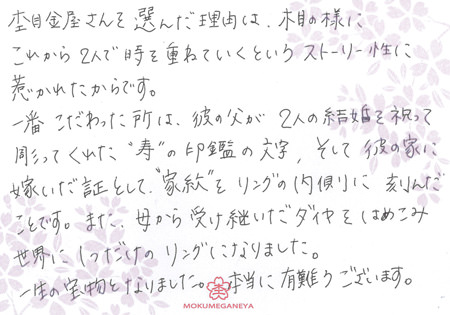 杢目金屋さんを選んだ理由は、木目の様に
これから2人で時を重ねていくというストーリー性に
惹かれたからです。
一番こだわった所は、彼の父が2人の結婚を祝って
彫ってくれた“寿”の印鑑の文字、そして彼の家に
嫁いだ証として、“家紋”をリングの内側に刻んだ
ことです。また、母から受け継いだダイヤをはめこみ
世界に1つだけのリングになりました。
一生の宝物となりました。本当に有難うございます。
MOKUMEGANEYA